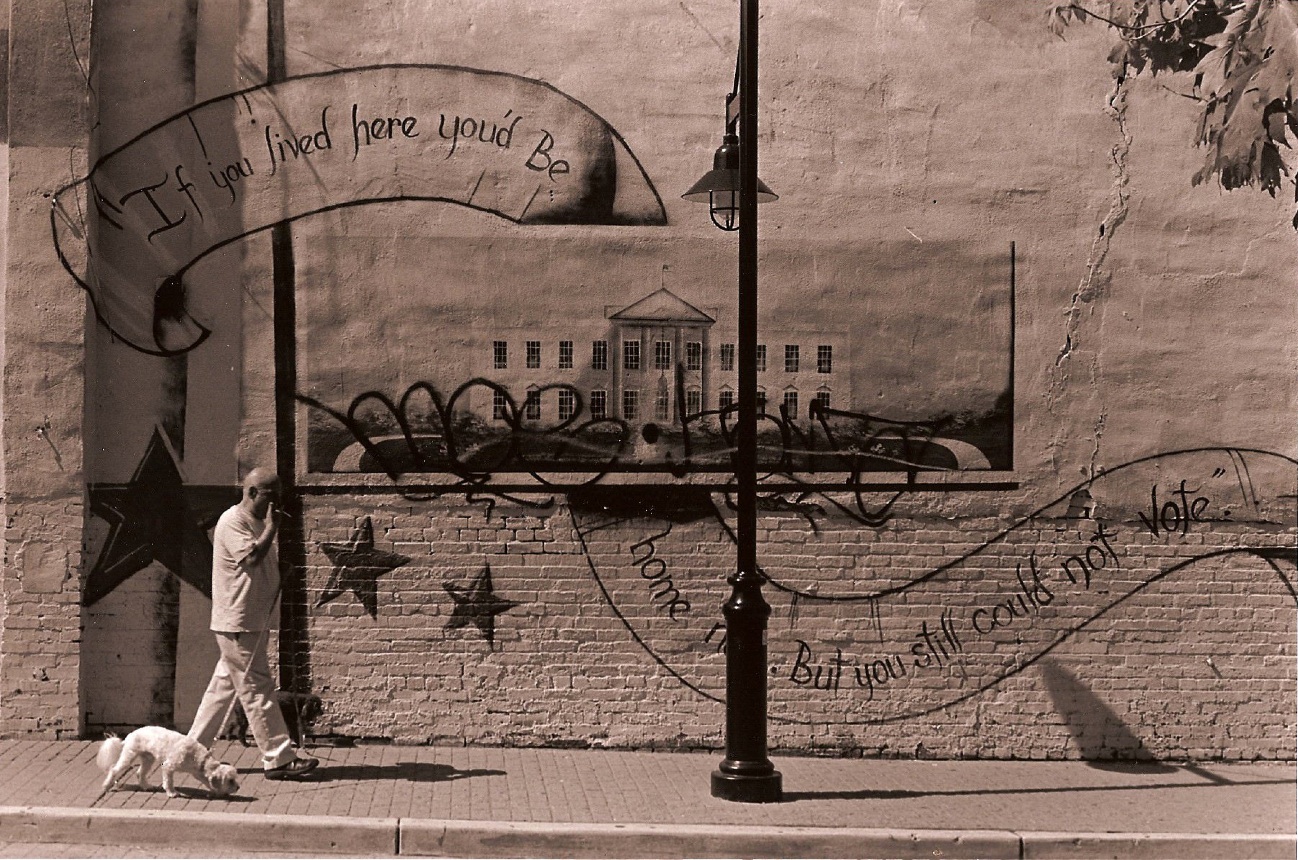 "If you lived here you'd Be
home
. But you still could not vote."